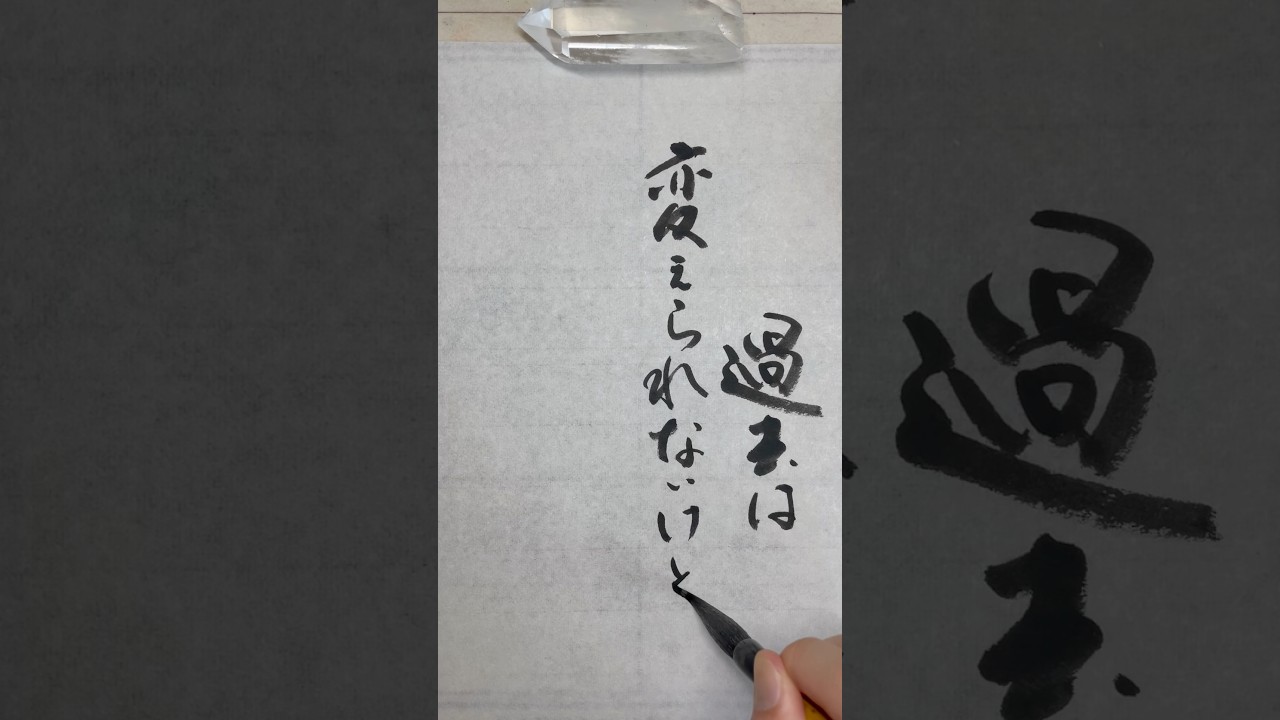 過去は
変えられないけと